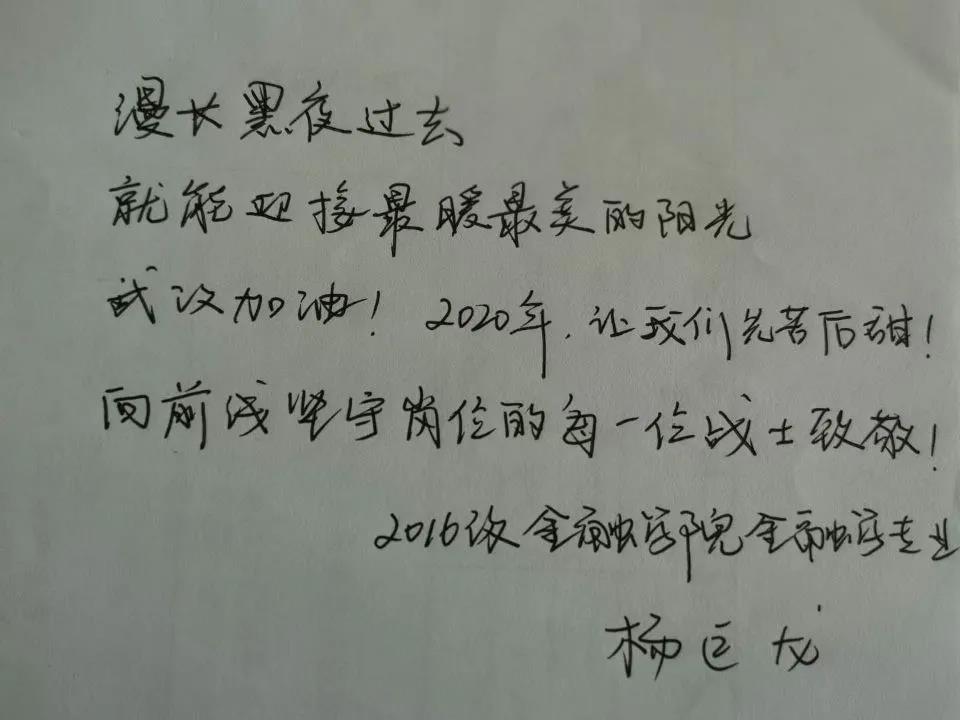 漫长黑夜过去
就能迎接最暖最美的阳光
武汉加油！2020年，让我们先苦后甜！
向前线坚守岗位的每一位战士致敬！
2016级金融学院金融学专业
杨巨龙